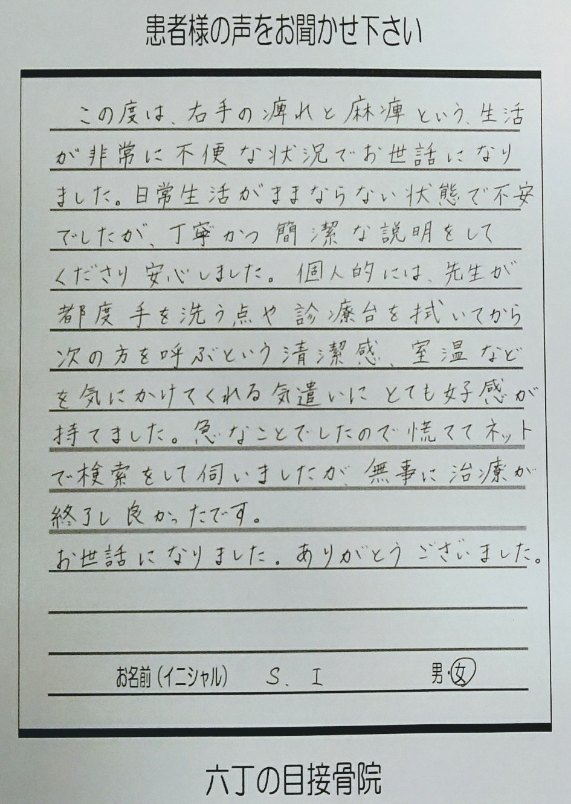 患者様の声をお聞かせ下さい
この度は、右手の痺れと麻痺という、生活
が非常に不便な状況でお世話になり
ました。日常生活がままならない状態で不安
でしたが、丁寧かつ簡潔な説明をして
くださり安心しました。個人的には、先生が
都度手を洗う点や診療台を拭いてから
次の方を呼ぶという清潔感、室温など
を気にかけてくれる気遣いにとても好感が
持てました。急なことでしたので慌ててネット
で検索をして伺いましたが、無事に治療が
終了し良かったです。
お世話になりました。ありがとうございました。
お名前(イニシャル) S. I 男・女
六丁の目接骨院